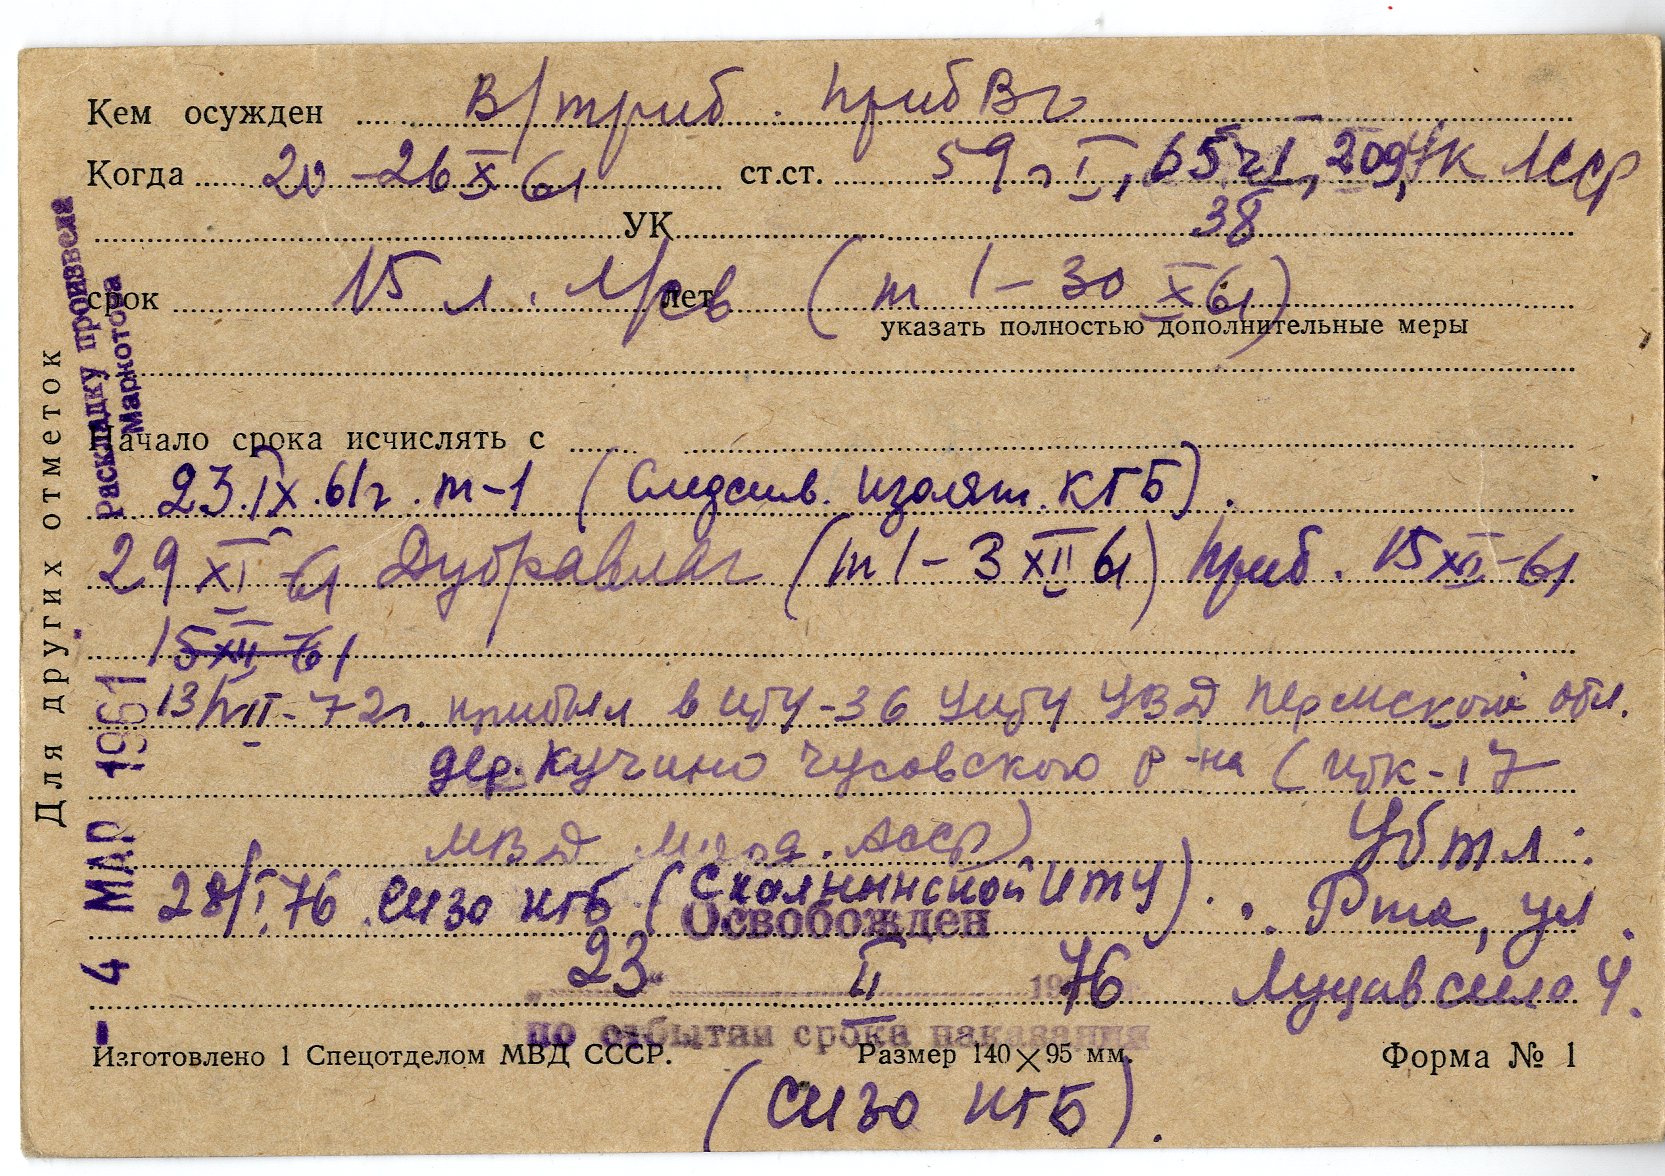 Кем осужден В/триб. ПрибВо
Когда 20-26 X 61 ст.ст. 59 ч I, 65 ч I, 209, УК ЛССР
УК 38
срок 15 л. лет (т 1 - 30 X 61)
указать полностью дополнительные меры
Начало срока исчислять с
23.IX.61г. т-1 (Следств. изолят. КГБ).
29 XI 61 Дубравлаг (т 1 - 3 XII 61) Приб. 15 XII-61
15 XII 61
13/VII-72г. прибыл в ИТУ-36 УИТУ УВД Пермской обл.
дер. Кучино Чусовского р-на (ИТК-17
МВД Морд. АССР)
Убыл:
28/I.76 СИЗО КГБ (Скальнинской ИТУ).
. Рига, ул.
Освобожден
„23“ II 1976
4.
по отбытии срока наказания
Изготовлено 1 Спецотделом МВД СССР. Размер 140×95 мм. Форма № 1
(СИЗО КГБ).
Для других отметок
Раскладку произвела
Маркотова
- 4 МАР 1961